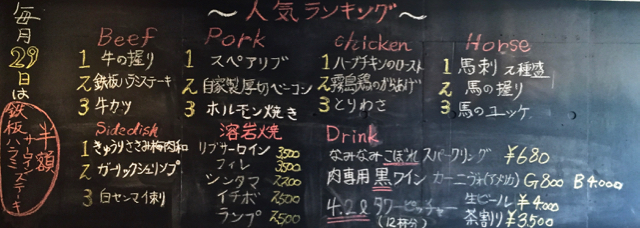 ～人気ランキング～
毎月29日は
鉄板ハラミステーキ
サーロインステーキ
半額
Beef
1 牛の握り
2 鉄板ハラミステーキ
3 牛カツ
Pork
1 スペアリブ
2 自家製厚切ベーコン
3 ホルモン焼き
chicken
1 ハーブチキンのロースト
2 霧島鶏のからあげ
3 とりわさ
Horse
1 馬刺 2種盛
2 馬の握り
3 馬のユッケ
Sidedish
1 きゅうりささみ梅肉和
2 ガーリックシュリンプ
3 白センマイ刺り
溶岩焼
リブサーロイン 3,500
フィレ 3,500
シンタマ 2,200
イチボ 2,500
ランプ 2,500
Drink
なみなみこぼれスパークリング ¥680
肉専用黒ワイン カーニヴォ(アメリカ) G800 B4.000
4.2ℓタワーピッチャー (12杯分)
生ビール ¥4.000
茶割り ¥3,500